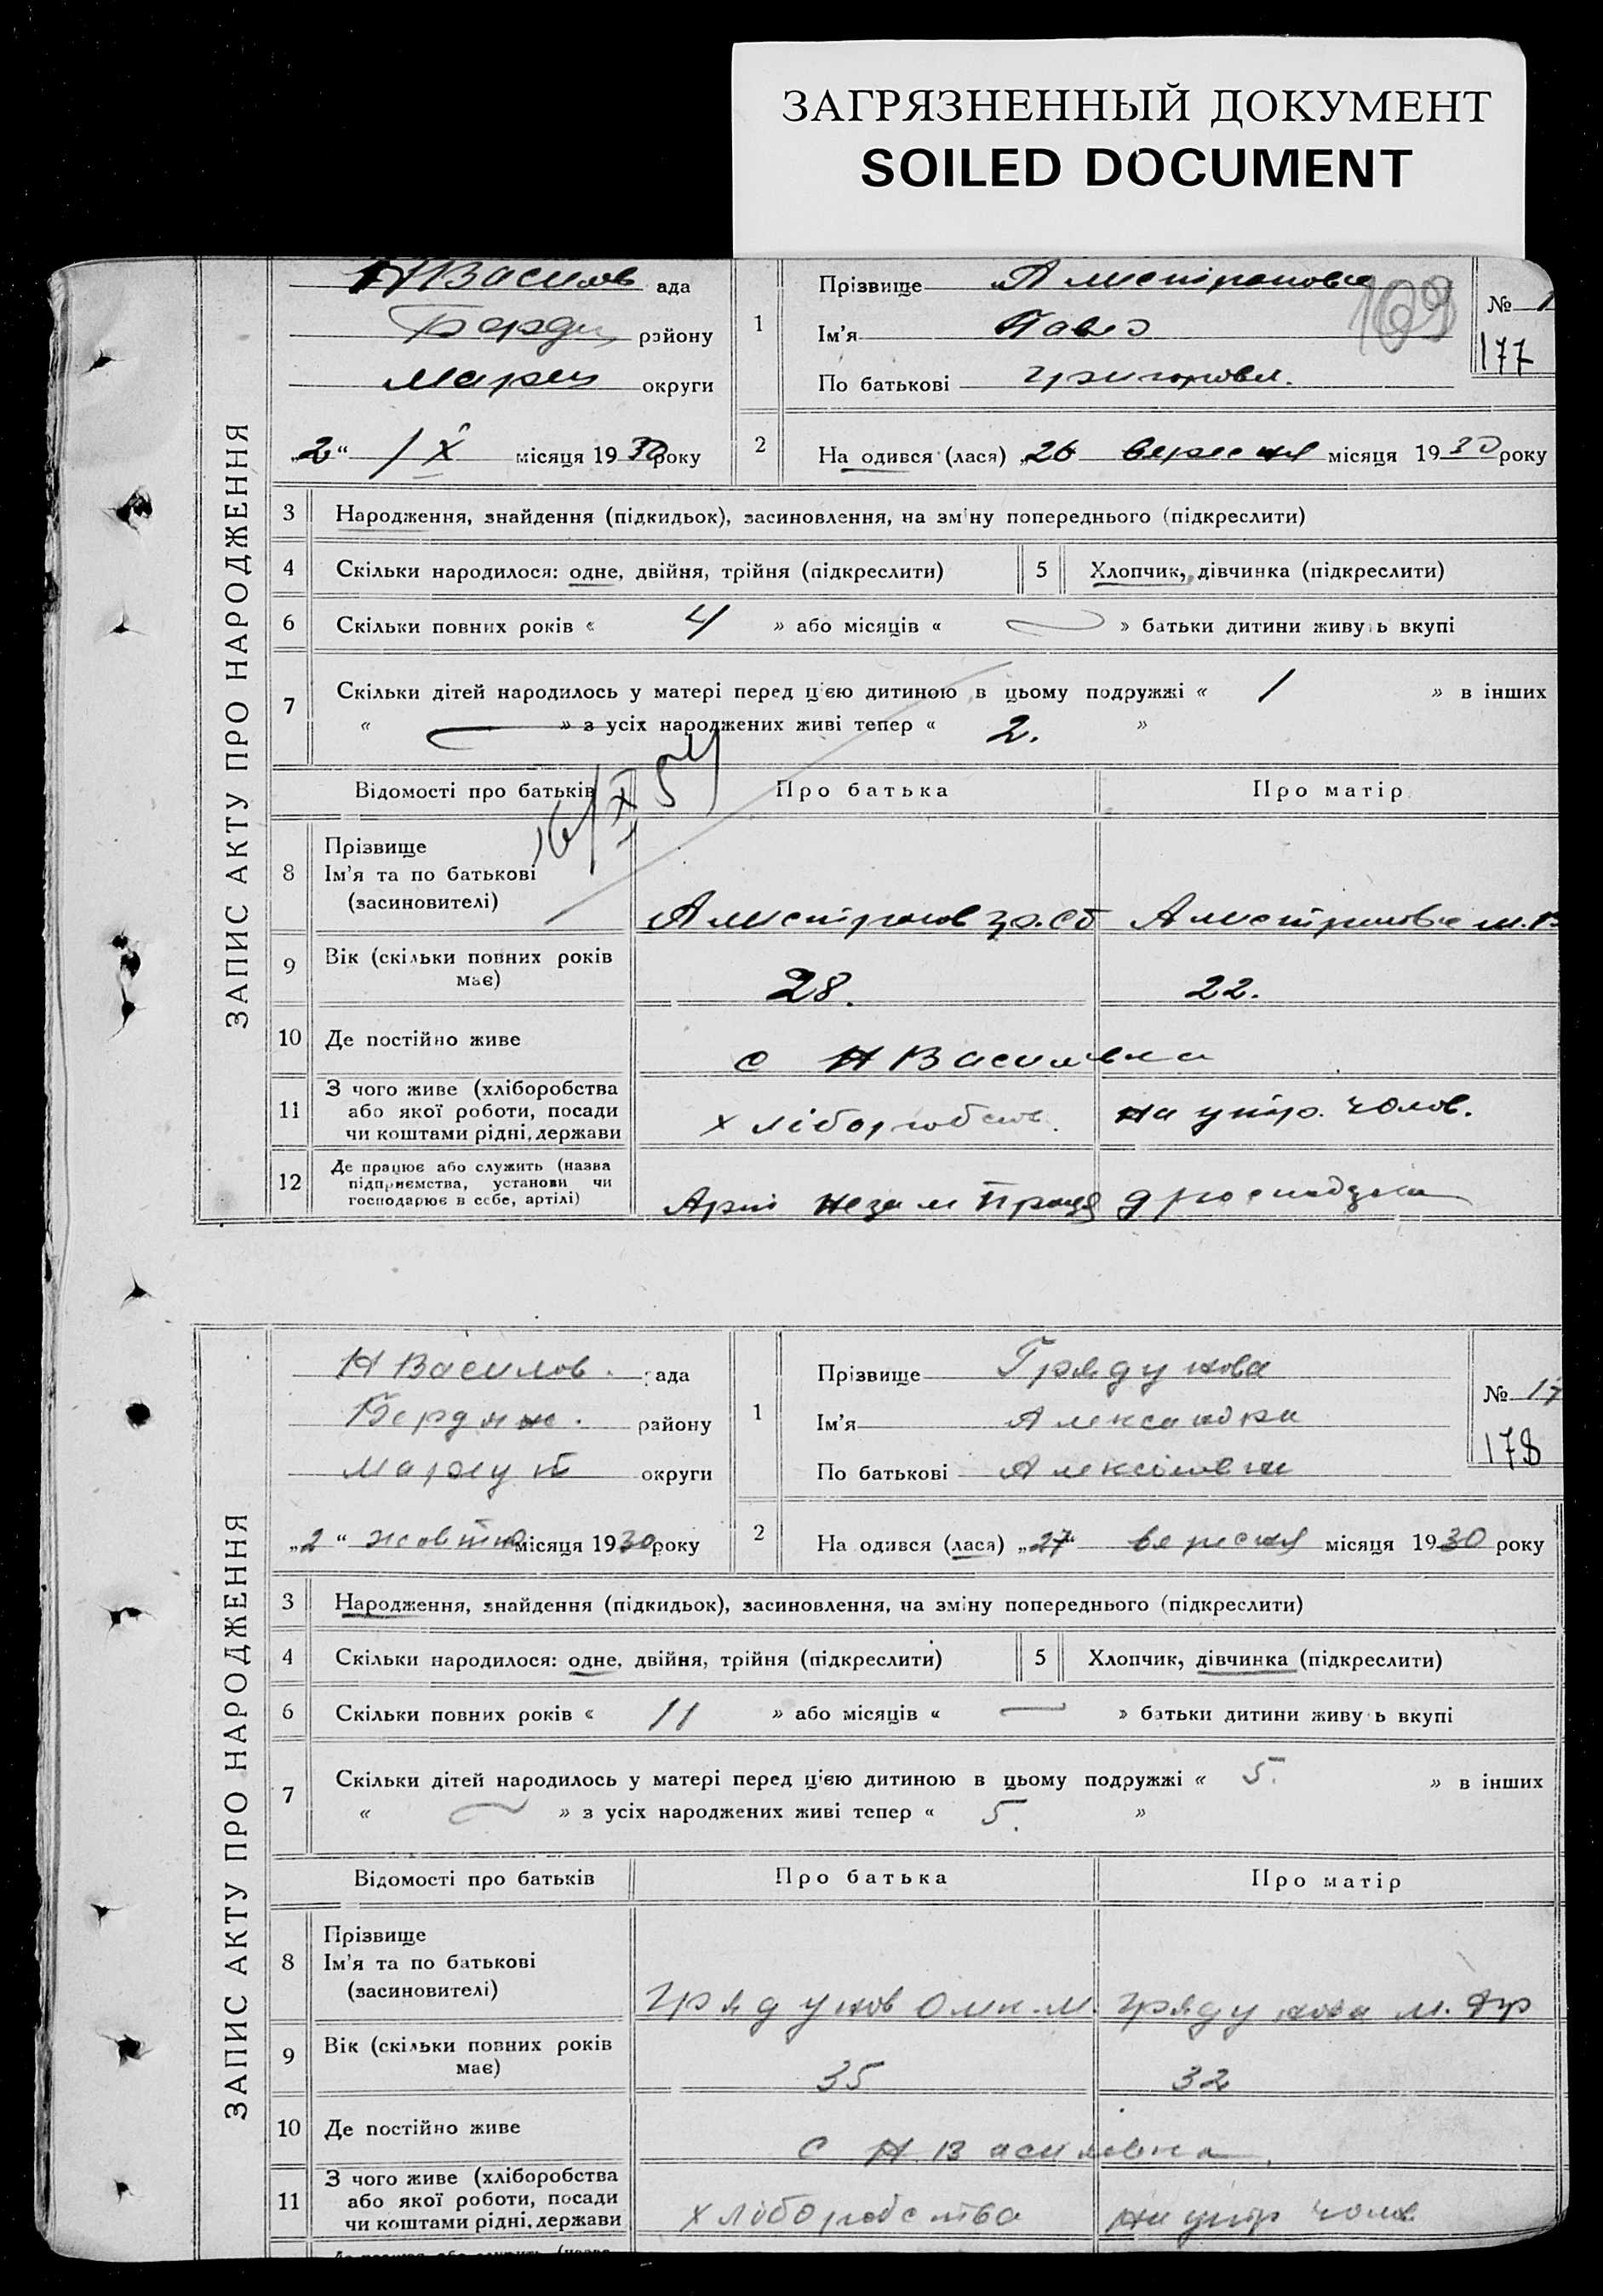 ЗАГРЯЗНЕННЫЙ ДОКУМЕНТ
SOILED DOCUMENT
ЗАПИС АКТУ ПРО НАРОДЖЕННЯ
НВасилов ада
Бердян району
Марiуп округи
„2“ IX місяця 1930 року
1 Прізвище
Ім'я Павло
По батькові Григоров.
169
№ 1
177
2 На одився (лася) „26 вересня місяця 1930 року
3 Народження, знайдення (підкидьок), засиновлення, на зміну попереднього (підкреслити)
4 Скільки народилося: одне, двійня, трійня (підкреслити) 5 Хлопчик, дівчинка (підкреслити)
6 Скільки повних років « 4 » або місяців « — » батьки дитини живуть вкупі
7 Скільки дітей народилось у матері перед цією дитиною в цьому подружжі « 1 » в інших
« — » з усіх народжених живі тепер « 2. »
16/X 54
Відомості про батьків Про батька Про матір
8 Прізвище
Ім'я та по батькові
(засиновителі)
9 Вік (скільки повних років
має) 28. 22.
10 Де постійно живе с Н Василівка
11 З чого живе (хліборобства
або якої роботи, посади
чи коштами рідні, держави хліборобств. на утр. чолов.
12 Де працює або служить (назва
підприємства, установи чи
господарює в себе, артілі) Арт Незам Праця
ЗАПИС АКТУ ПРО НАРОДЖЕННЯ
Н Василов. ада
Бердян. району
Маріуп округи
„2“ жовтня місяця 1930 року
1 Прізвище Грядунова
Ім'я Александра
По батькові Алексіевна
№ 17
178
2 На одився (лася) „27“ вересня місяця 1930 року
3 Народження, знайдення (підкидьок), засиновлення, на зміну попереднього (підкреслити)
4 Скільки народилося: одне, двійня, трійня (підкреслити) 5 Хлопчик, дівчинка (підкреслити)
6 Скільки повних років « 11 » або місяців « — » батьки дитини живуть вкупі
7 Скільки дітей народилось у матері перед цією дитиною в цьому подружжі « 5. » в інших
« — » з усіх народжених живі тепер « 5. »
Відомості про батьків Про батька Про матір
8 Прізвище
Ім'я та по батькові
(засиновителі) Грядунов Грядунова М.
9 Вік (скільки повних років
має) 35 32
10 Де постійно живе с Н. Василовка.
11 З чого живе (хліборобства
або якої роботи, посади
чи коштами рідні, держави хліборобства на утр чолов.